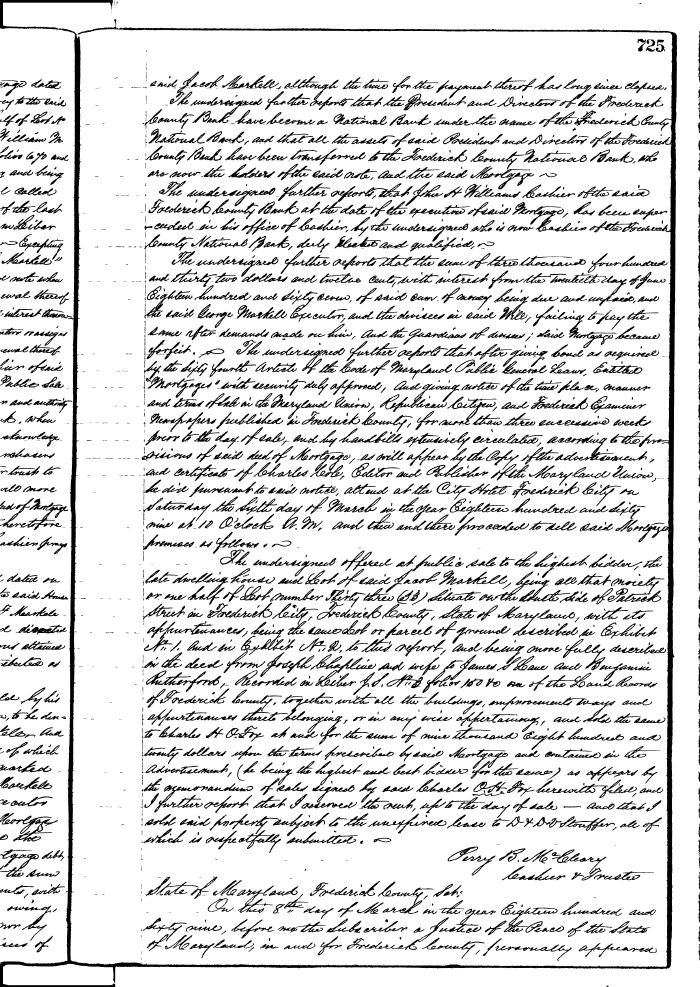 725
said Jacob Markell, although the time for the payment thereof has long since elapsed.
The undersigned further reports that the President and Directors of the Frederick
County Bank have become a National Bank under the name of the Frederick County
National Bank, and that all the assets of said President and Directors of the Frederick
County Bank have been transferred to the Frederick County National Bank, who
are now the holders of the said note, and the said Mortgage
The undersigned further reports, that John H Williams Cashier of the said
Frederick County Bank at the date of the execution of said Mortgage, has been super-
-ceeded in his office of Cashier, by the undersigned who is now Cashier of the Frederick
County National Bank, duly elected and qualified,
The undersigned further reports that the sum of three thousand four hundred
and thirty two dollars and twelve cents, with interest from the twentieth day of June
Eighteen hundred and sixty seven, of said sum of money being due and unpaid, and
the said George Markell Executor, and the devisees in said Will, failing to pay the
same after demands made on him, and the Guardians of devisees; said Mortgage became
forfeit. The undersigned further reports that after giving bond as required
by the Sixty fourth Article of the Code of Maryland Public General Laws, Entitled
"Mortgages" with security duly approved, And giving notice of the time place, manner
and terms of sale in the Maryland Union, Republican Citizen, and Frederick Examiner
Newspapers published in Frederick County, for more than three successive weeks
prior to the day of sale, and by handbills extensively circulated, according to the pro-
visions of said deed of Mortgage, as will appear by the Copy of the advertisement,
and certificate of Charles Cole, Editor and Publisher of the Maryland Union,
he did pursuant to said notice, attend at the City Hotel Frederick City on
Saturday the sixth day of March in the year Eighteen hundred and sixty
nine at 10 O'clock A.M. and then and there proceeded to sell said Mortgaged
premises as follows.
The undersigned offered at public sale to the highest bidder, the
late dwelling house and Lot of said Jacob Markell, being all that moiety
or one half of Lot number Thirty three (33) situate on the South side of Patrick
Street in Frederick City, Frederick County, State of Maryland, with its
appurtenances, being the same Lot or parcel of ground described in Exhibit
No. 1. and in Exhibit No. 2, to this report, and being more fully described
in the deed from Joseph Chapline and wife to James S Lane and Benjamin
Rutherford, Recorded in Liber J.S. No 3 folio 150 40 one of the Land Records
of Frederick County, together with all the buildings, improvements ways and
appurtenances thereto belonging, or in any wise appertaining, and sold the same
to Charles H O. Fox at and for the sum of nine thousand Eight hundred and
twenty dollars upon the terms prescribed by said Mortgage and contained in the
Advertisement, (he being the highest and best bidder for the same) as appears by
the memorandum of sales signed by said Charles O.H. Fox herewith filed, and
I further report that I reserved the rent, up to the day of sale — And that I
sold said property subject to the unexpired lease to D & D D Stouffer, all of
which is respectfully submitted.
Perry B. McCleary
Cashier & Trustee
State of Maryland, Frederick County, Sct:
On this 8th day of March in the year Eighteen hundred and
sixty nine, before me the subscriber a Justice of the Peace of the State
of Maryland, in and for Frederick County, personally appeared